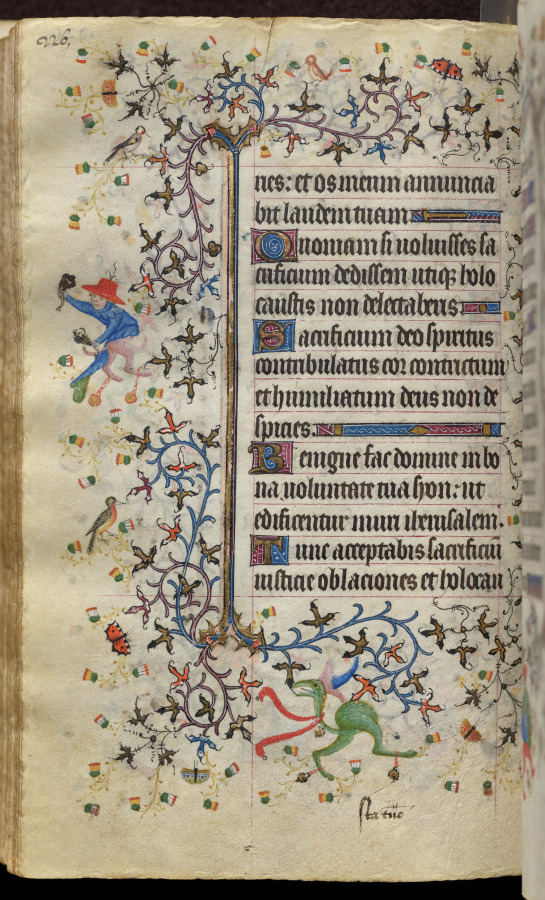 226.
nes: et os meum annuncia
bit laudem tuam
Quoniam si uoluisses sa
crificium dedissem utiqꝫ holo
caustis non delectaberis
Sacrificium deo spiritus
contribulatus cor contrictum
et humiliatum deus non de
spicies.
Benigne fac domine in bo
na uoluntate tua syon: ut
edificentur muri iherusalem.
Tunc acceptabis sacrificiū
iusticie oblaciones et holocau